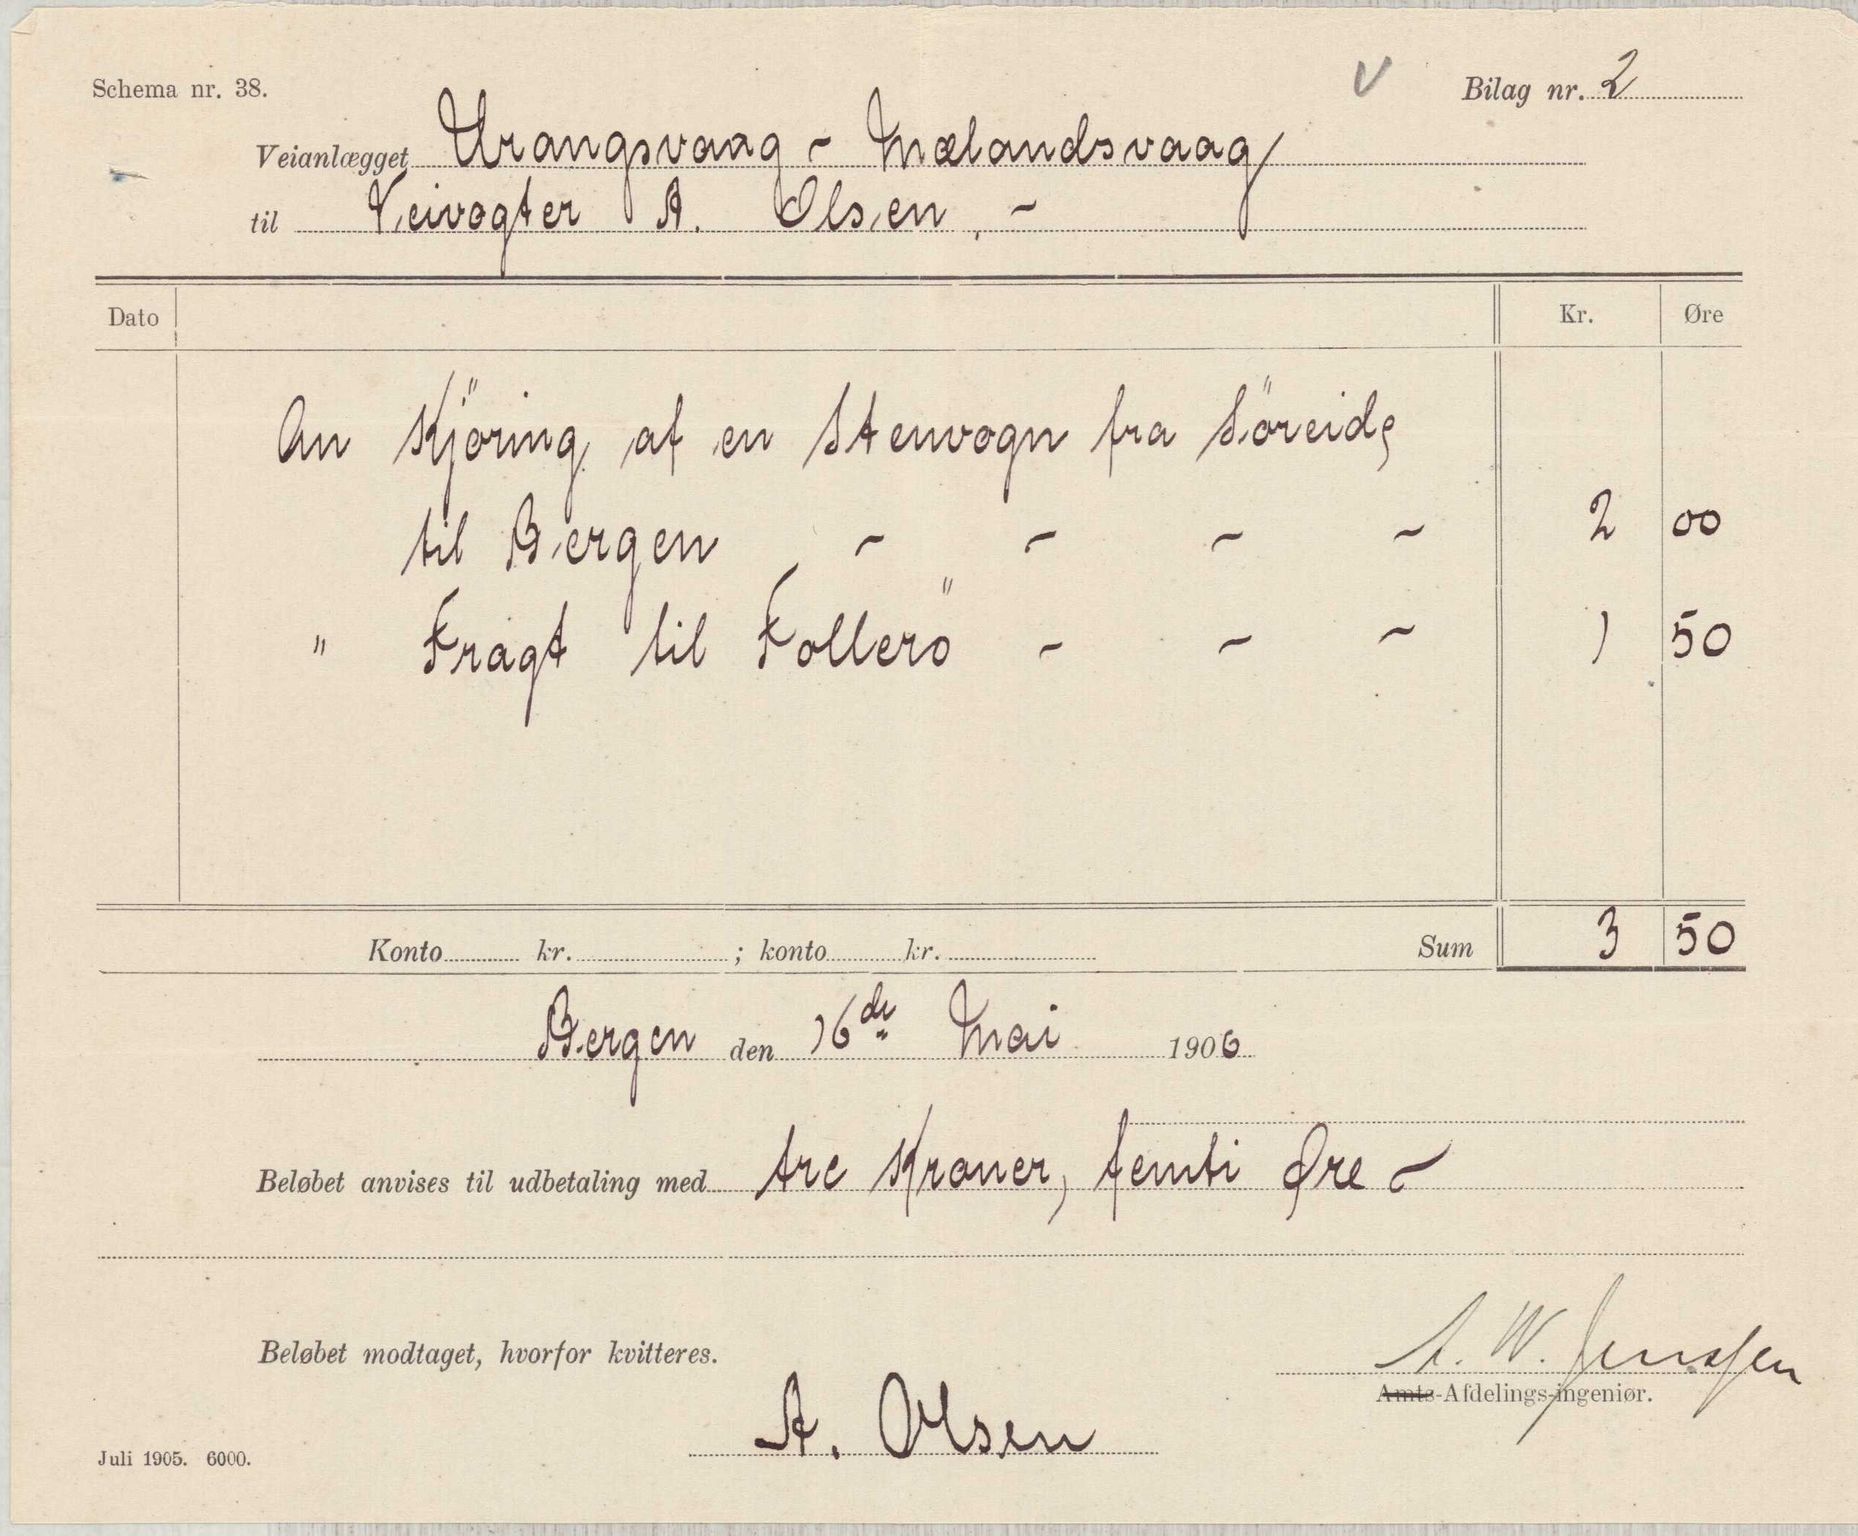 Schema nr. 38.
v
Bilag nr. 2
Veianlægget Urangsvaag - Mælandsvaag
til Veivogter A. Olsen. -
Dato Kr. Øre
An Kjöring af en Stenvogn fra Söreide
til Bergen - - - - 2 00
" Fragt til Follerö - - - 1 50
Konto kr. ; konto kr. Sum 3 50
Bergen den 16de Mai 1906
Beløbet anvises til udbetaling med tre Kroner, femti Øre -
Beløbet modtaget, hvorfor kvitteres.
A. W. Jenssen
Amts-Afdelings-ingeniør.
A. Olsen
Juli 1905. 6000.